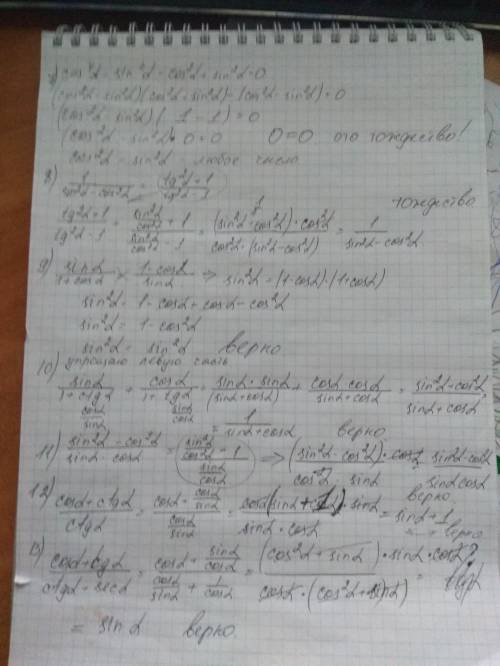 cos⁴α - sin⁴α - cos²α + sin²α = 0
(cos²α - sin²α)(cos²α + sin²α) - (cos²α - sin²α) = 0
(cos²α - sin²α)(1 - 1) = 0
(cos²α - sin²α) · 0 = 0   0 = 0 это тождество!
cos²α - sin²α - любое число
8) 1/(sin²α - cos²α) = (tg²α + 1)/(tg²α - 1)
(tg²α + 1)/(tg²α - 1) = (sin²α/cos²α + 1)/(sin²α/cos²α - 1) = (sin²α + cos²α) · cos²α/(cos²α · (sin²α - cos²α)) = 1/(sin²α - cos²α) тождество
9) sinα/(1 + cosα) (1 - cosα)/sinα ⇒ sin²α = (1 - cosα) · (1 + cosα)
sin²α = 1 - cosα + cosα - cos²α
sin²α = 1 - cos²α
sin²α = sin²α верно
10) упрощаю левую часть
sinα/(1 + ctgα) + cosα/(1 + tgα) = sinα · sinα/(sinα + cosα) + cosα · cosα/(sinα + cosα) = (sin²α + cos²α)/(sinα + cosα)
cosα/sinα   sinα/cosα   = 1/(sinα + cosα) верно
11) (sin²α - cos²α)/(sinα · cosα) = (sin²α/cos²α - 1)/(sinα/cosα) ⇒ (sin²α - cos²α) · cosα/(cos²α · sinα) = (sin²α - cos²α)/(sinα cosα) верно
12) (cosα + ctgα)/ctgα = (cosα + cosα/sinα)/(cosα/sinα) = cosα(sinα + 1) · sinα/(sinα · cosα) = sinα + 1 верно
13) = (cosα + sinα/cosα)/(cosα/sinα + 1/cosα) = (cos²α + sinα) · sinα · cosα/(cosα · (cos²α + sinα)) =
= sinα верно.